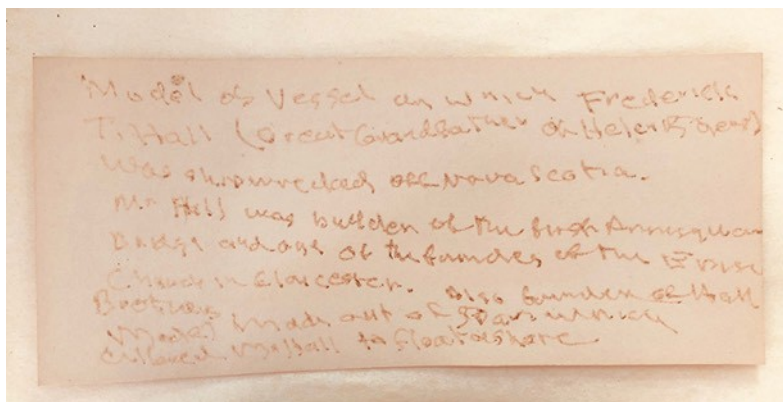 Model of Vessel on which Frederick
T. Hall (Great Grandfather of Helen
was shipwrecked off Nova Scotia.
Mr Hall was builder of the first Annisquam
Bridge and one of the founders of the
Church in Gloucester. Also founder of Hall
Brothers
Model made out of Spar which
allowed Mr Hall to float ashore